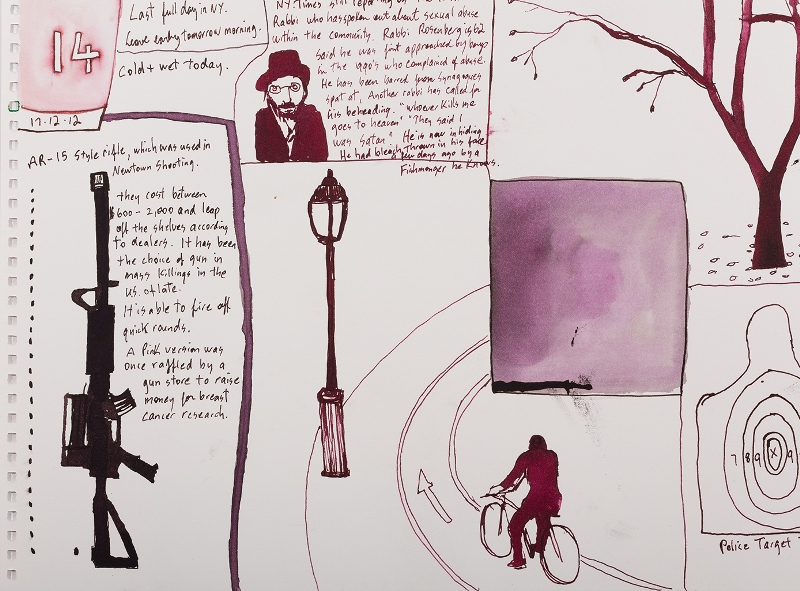 14
17.12.12
Last full day in NY.
Leave early tomorrow morning.
Cold + wet today.
NY Times still reporting on the
Rabbi who has spoken out about sexual abuse
within the community. Rabbi Rosenberg is 62
said he was first approached by boys
in the 1990's who complained of abuse.
He has been barred from synagogues
spat at, Another rabbi has called for
his beheading. "whoever kills me
goes to heaven" "They said I
was Satan". He is now in hiding
He had bleach thrown in his face
a few days ago by a
Fishmonger he knows.
AR-15 style rifle, which was used in
Newtown shooting.
they cost between
$600 - 2,000 and leap
off the shelves according
to dealers. It has been
the choice of gun in
mass killings in the
US. of late.
It is able to fire off
quick rounds.
A Pink version was
once raffled by a
gun store to raise
money for breast
cancer research.
7 8 9 X 9
Police Target